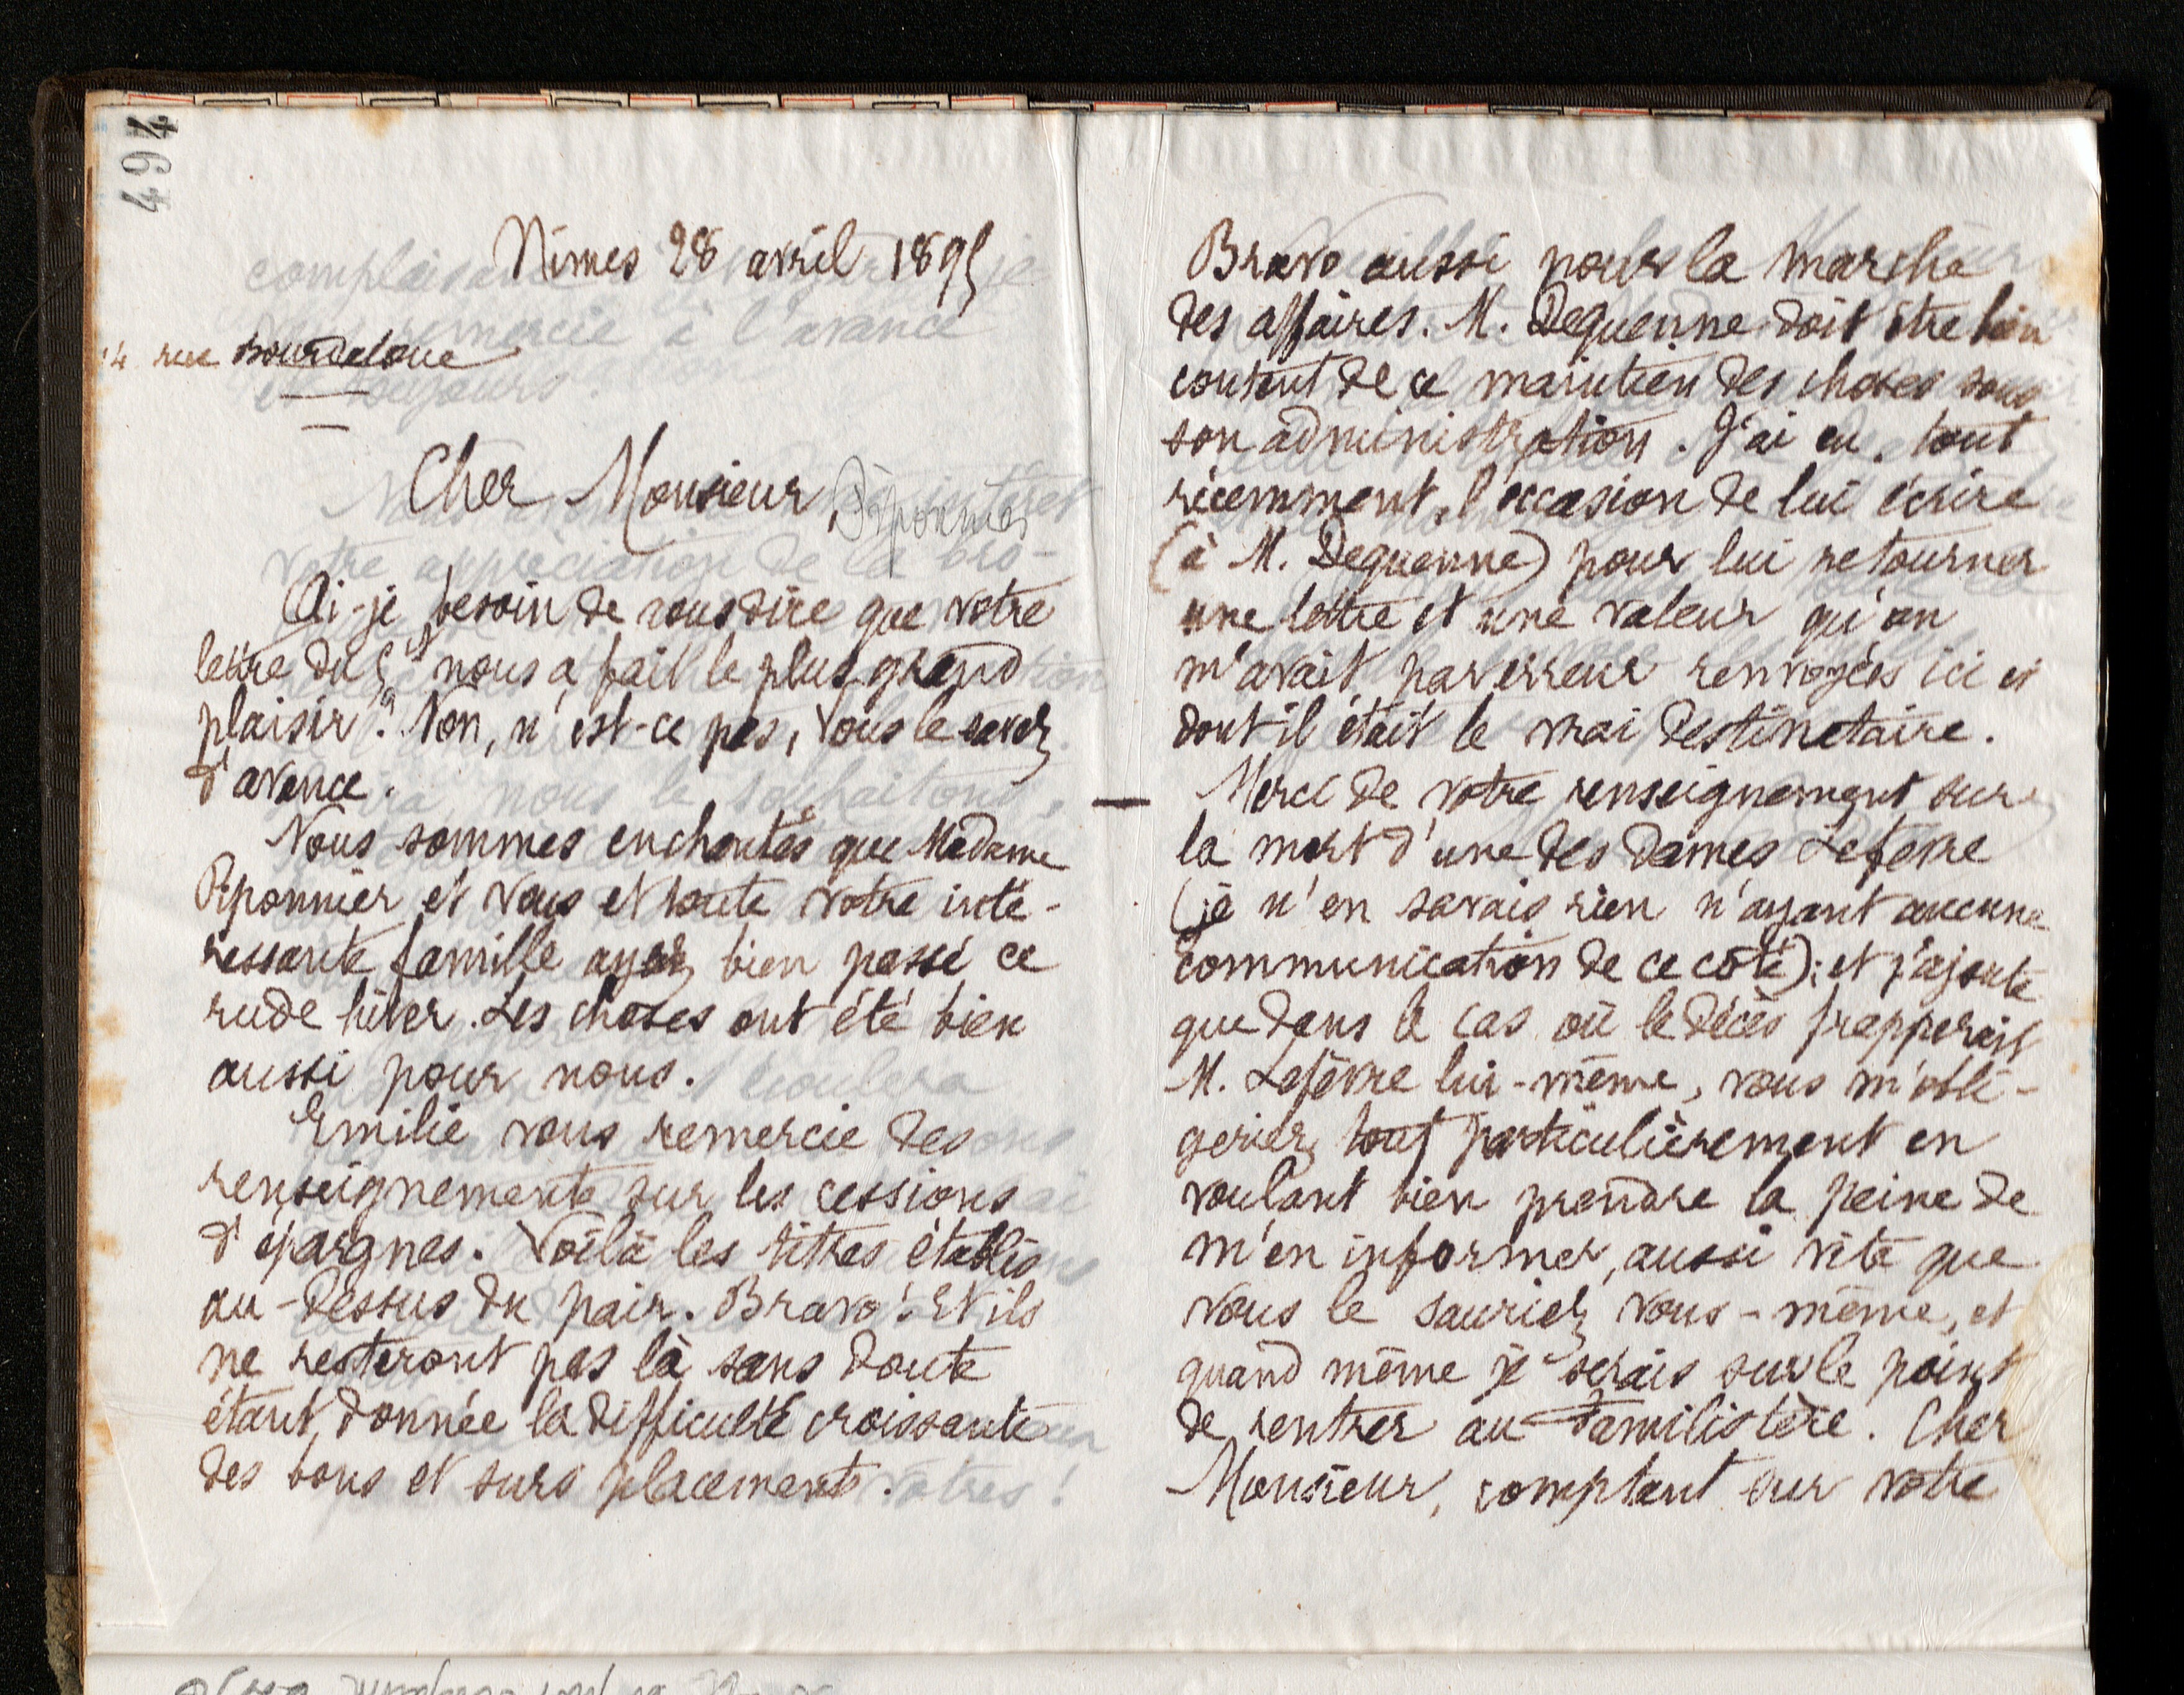 494
Nimes 28 avril 1895
14 rue Bourdaloue
Cher Monsieur Piponnier
Ai-je besoin de vous dire que votre
lettre du 5 ct nous a fait le plus grand
plaisir? Non, n'est-ce pas, vous le savez
d'avance.
Nous sommes enchantés que Madame
Piponnier et vous et toute votre inté-
ressante famille ayez bien passé ce
rude hiver. Les choses ont été bien
aussi pour nous.
Emilie vous remercie des
renseignements sur les cessions
d'épargnes. Voilà les titres établis
au-dessus du pair. Bravo! Et ils
ne resteront pas là sans doute
étant donnée la difficulté croissante
des bons et surs placements.
Bravo aussi pour la marche
des affaires. M. Dequenne doit être bien
content de ce maintien des choses sous
son administration. J'ai eu, tout
récemment, l'occasion de lui écrire
(à M. Dequenne) pour lui retourner
une lettre et une valeur qu'on
m'avait par erreur renvoyées ici et
dont il était le vrai destinataire.
Merci de votre renseignement sur
la mort d'une des dames Lefèvre
(je n'en savais rien n'ayant aucune
communication de ce côté); et j'ajoute
que dans le cas où le décès frapperait
M. Lefèvre lui-même, vous m'obli-
geriez tout particulièrement en
voulant bien prendre la peine de
m'en informer, aussi vite que
vous le sauriez vous-même, et
quand même je serais sur le point
de rentrer au Familistère. Cher
Monsieur, comptant sur votre